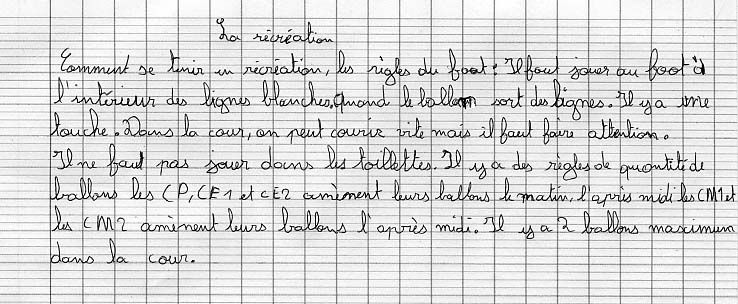 La récréation
Comment se tenir en récréation, les règles du foot : Il faut jouer au foot à
l'intérieur des lignes blanches. Quand le ballon sort des lignes. Il y a une
touche. Dans la cour, on peut courir vite mais il faut faire attention.
Il ne faut pas jouer dans les toillettes. Il y a des règles de quantité de
ballons les CP, CE1 et CE2 amènent leurs ballons le matin, l'après midi les CM1 et
les CM2 amènent leurs ballons l'après midi. Il y a 2 ballons maximum
dans la cour.